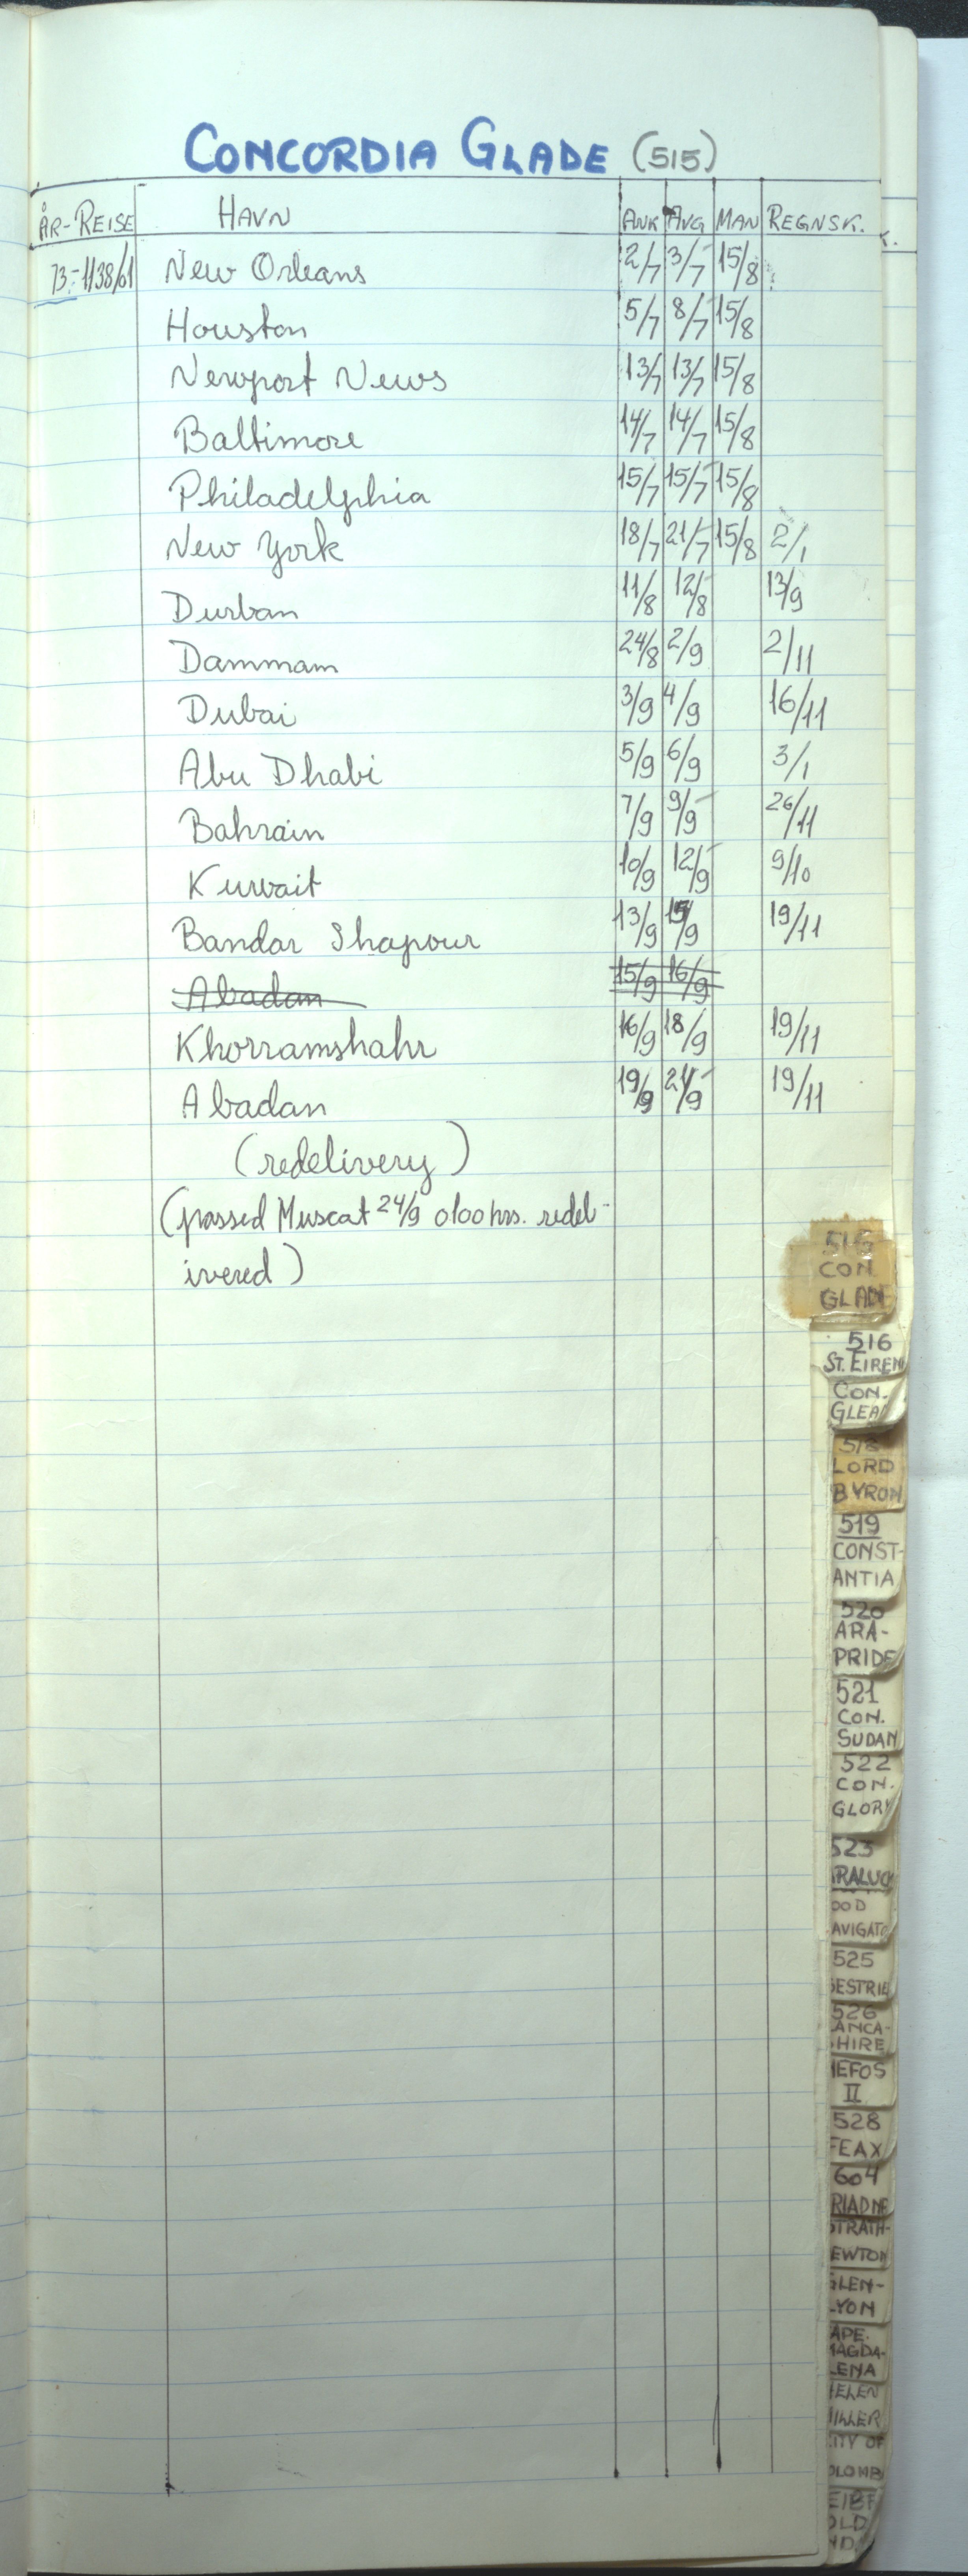 CONCORDIA GLADE (515)
ÅR-REISE HAVN ANK AVG MAN REGNSK.
K.
73.-1138/01 New Orleans 2/7 3/7 15/8
Houston 5/7 8/7 15/8
Newport News 13/7 13/7 15/8
Baltimore 14/7 14/7 15/8
Philadelphia 15/7 15/7 15/8
New York 18/7 21/7 15/8 2/1
Durban 11/8 12/8 13/9
Dammam 24/8 2/9 2/11
Dubai 3/9 4/9 16/11
Abu Dhabi 5/9 6/9 3/1
Bahrain 7/9 9/9 26/11
Kuwait 10/9 12/9 9/10
Bandar Shapour 13/9 15/9 19/11
Abadan 15/9 16/9
Khorramshahr 16/9 18/9 19/11
Abadan 19/9 21/9 19/11
(redelivery)
(passed Muscat 24/9 0100 hrs. redel-
ivered)
515
CON.
GLADE
516
ST. EIREN
CON.
GLEA
518
LORD
BYRON
519
CONST-
ANTIA
520
ARA-
PRIDE
521
CON.
SUDAN
522
CON.
GLORY
523
RALUCK
OOD
AVIGATO
525
SESTRIE
526
LANCA-
SHIRE
HEFOS
II
528
FEAX
604
RIADNE
STRATH-
EWTON
GLEN-
LYON
APE.
MAGDA-
LENA
HELEN
MILLER
CITY OF
OLOMB
EIBF
OLD
ND.